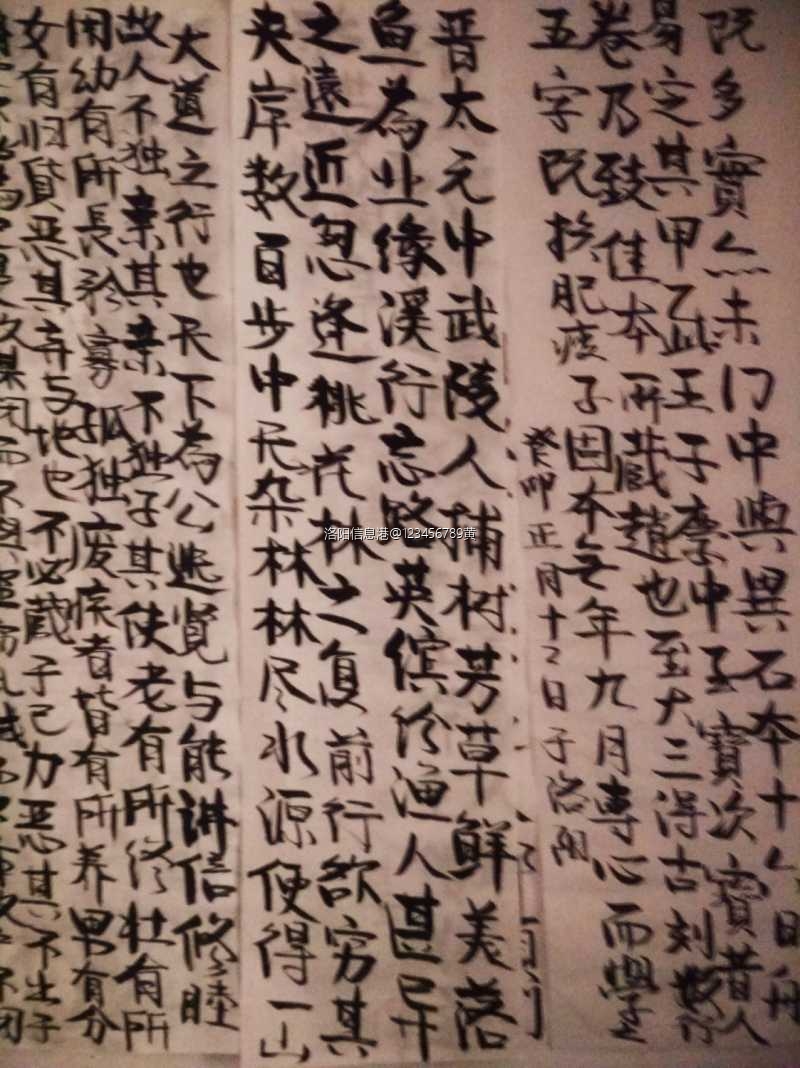 既多實亦未门中與異石本十六日舟
易定其甲乙此王子李中玉寶次寶昔人
卷乃致佳本所藏趙也至大三得古刻數行
五字既損肥瘦子因本無年九月專心而學之
癸卯正月十二日子洛阳
晋太元中武陵人捕树芳草鲜美落
鱼為业缘溪行忘路英缤纷渔人甚异
之遠近忽逢桃花林之复前行欲穷其
夹岸数百步中无杂林林尽水源便得一山
大道之行也天下為公选贤与能讲信修睦
故人不独亲其亲不独子其使老有所终壮有所
用幼有所長矜寡孤独废疾者皆有所养男有分
女有归货恶其弃与地也不必藏于己力恶其不出于
是故谋闭而不興盗窃乱贼而不
洛阳信息港@123456789黄